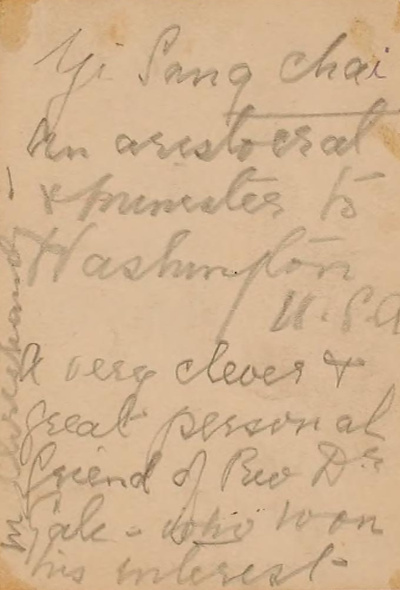 Yi Sang chai
An aristocrat
& minister to
Washington
U.S.A
A very clever &
great personal
friend of Rev Dr
Gale - who won
his interest
in Christianity -